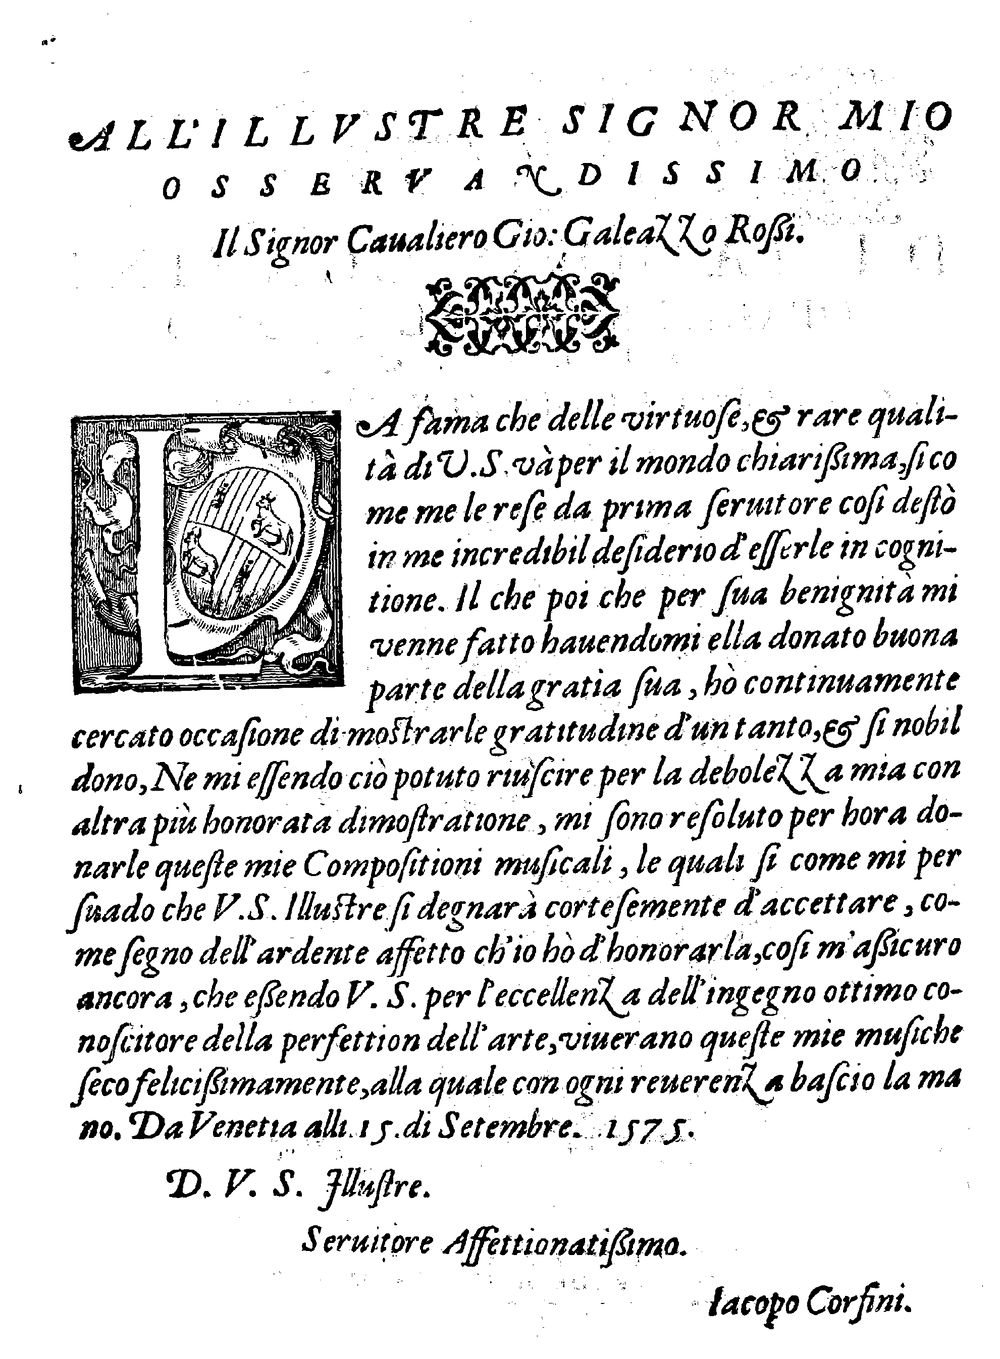 ALL'ILLVSTRE SIGNOR MIO
OSSERVANDISSIMO
Il Signor Caualiero Gio: Galeazzo Roſſi.
LA fama che delle virtuoſe,& rare quali-
tà di V.S. và per il mondo chiariſſima,ſi co
me me le reſe da prima ſeruitore coſi deſtò
in me incredibil deſiderio d'eſſerle in cogni-
tione. Il che poi che per ſua benignità mi
venne fatto hauendomi ella donato buona
parte della gratia ſua, hò continuamente
cercato occaſione di moſtrarle gratitudine d'un tanto,& ſi nobil
dono, Ne mi eſſendo ciò potuto riuſcire per la debolezza mia con
altra più honorata dimoſtratione, mi ſono reſoluto per hora do-
narle queſte mie Compoſitioni muſicali, le quali ſi come mi per
ſuado che V.S. Illuſtre ſi degnarà corteſemente d'accettare, co-
me ſegno dell'ardente affetto ch'io hò d'honorarla,coſi m'aſſicuro
ancora, che eſſendo V. S. per l'eccellenza dell'ingegno ottimo co-
noſcitore della perfettion dell'arte,viuerano queſte mie muſiche
ſeco feliciſſimamente,alla quale con ogni reuerenza baſcio la ma
no. Da Venetia alli.15.di Setembre. 1575.
D. V. S. Illuſtre.
Seruitore Affettionatiſſimo.
Iacopo Corfini.